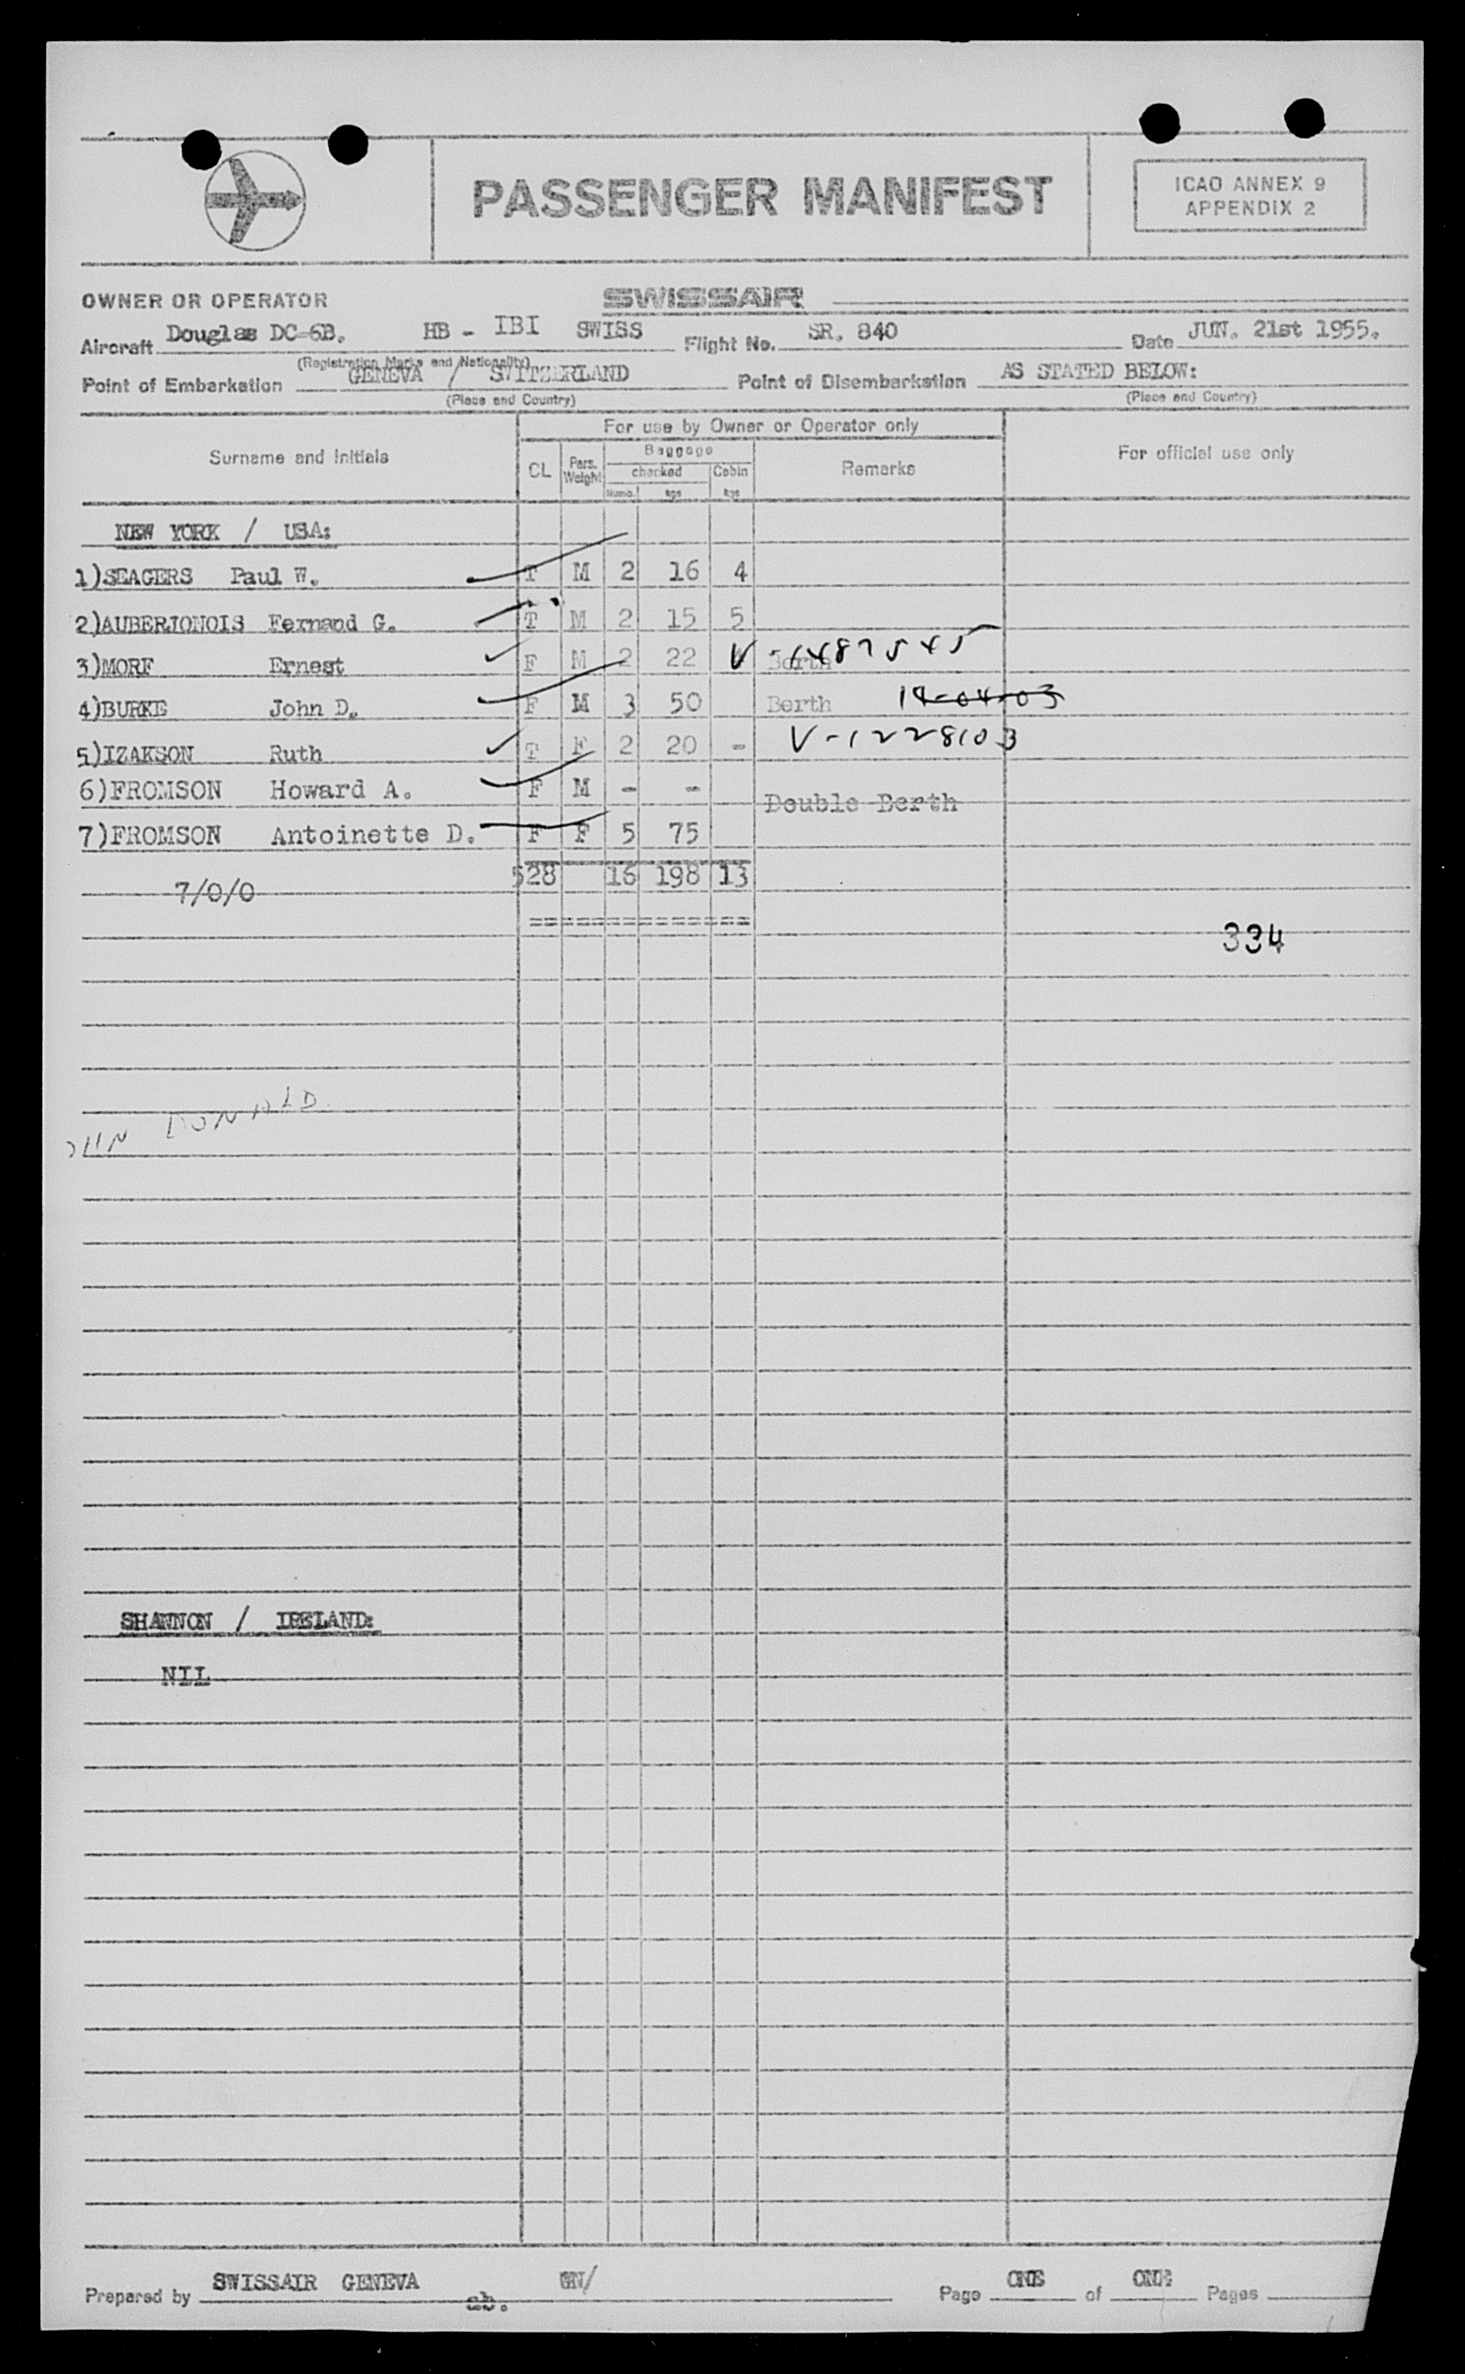 PASSENGER MANIFEST
ICAO ANNEX 9
APPENDIX 2
OWNER OR OPERATOR SWISSAIR
Aircraft Douglas DC-6B. HB - IBI SWISS Flight No. SR. 840 Date JUN. 21st 1955.
(Registration Marks and Nationality)
Point of Embarkation GENEVA / SWITZERLAND Point of Disembarkation AS STATED BELOW:
(Place and Country) (Place and Country)
For use by Owner or Operator only
Surname and Initials CL Pers. Weight Baggage checked Cabin Remarks For official use only
Numb. kgs kgs
NEW YORK / USA:
1)SEAGERS Paul W. T M 2 16 4
2)AUBERJONOIS Fernand G. T M 2 15 5
3)MORF Ernest F M 2 22 Berth V-1487545
4)BURKE John D. F M 3 50 Berth 14-04103
5)IZAKSON Ruth T F 2 20 - V-1228103
6)FROMSON Howard A. F M - -
Double Berth
7)FROMSON Antoinette D. F F 5 75
7/0/0 528 16 198 13
==============
334
DONALD
SHANNON / IRELAND:
NIL
Prepared by SWISSAIR GENEVA ab. GN/ Page ONE of ONE Pages